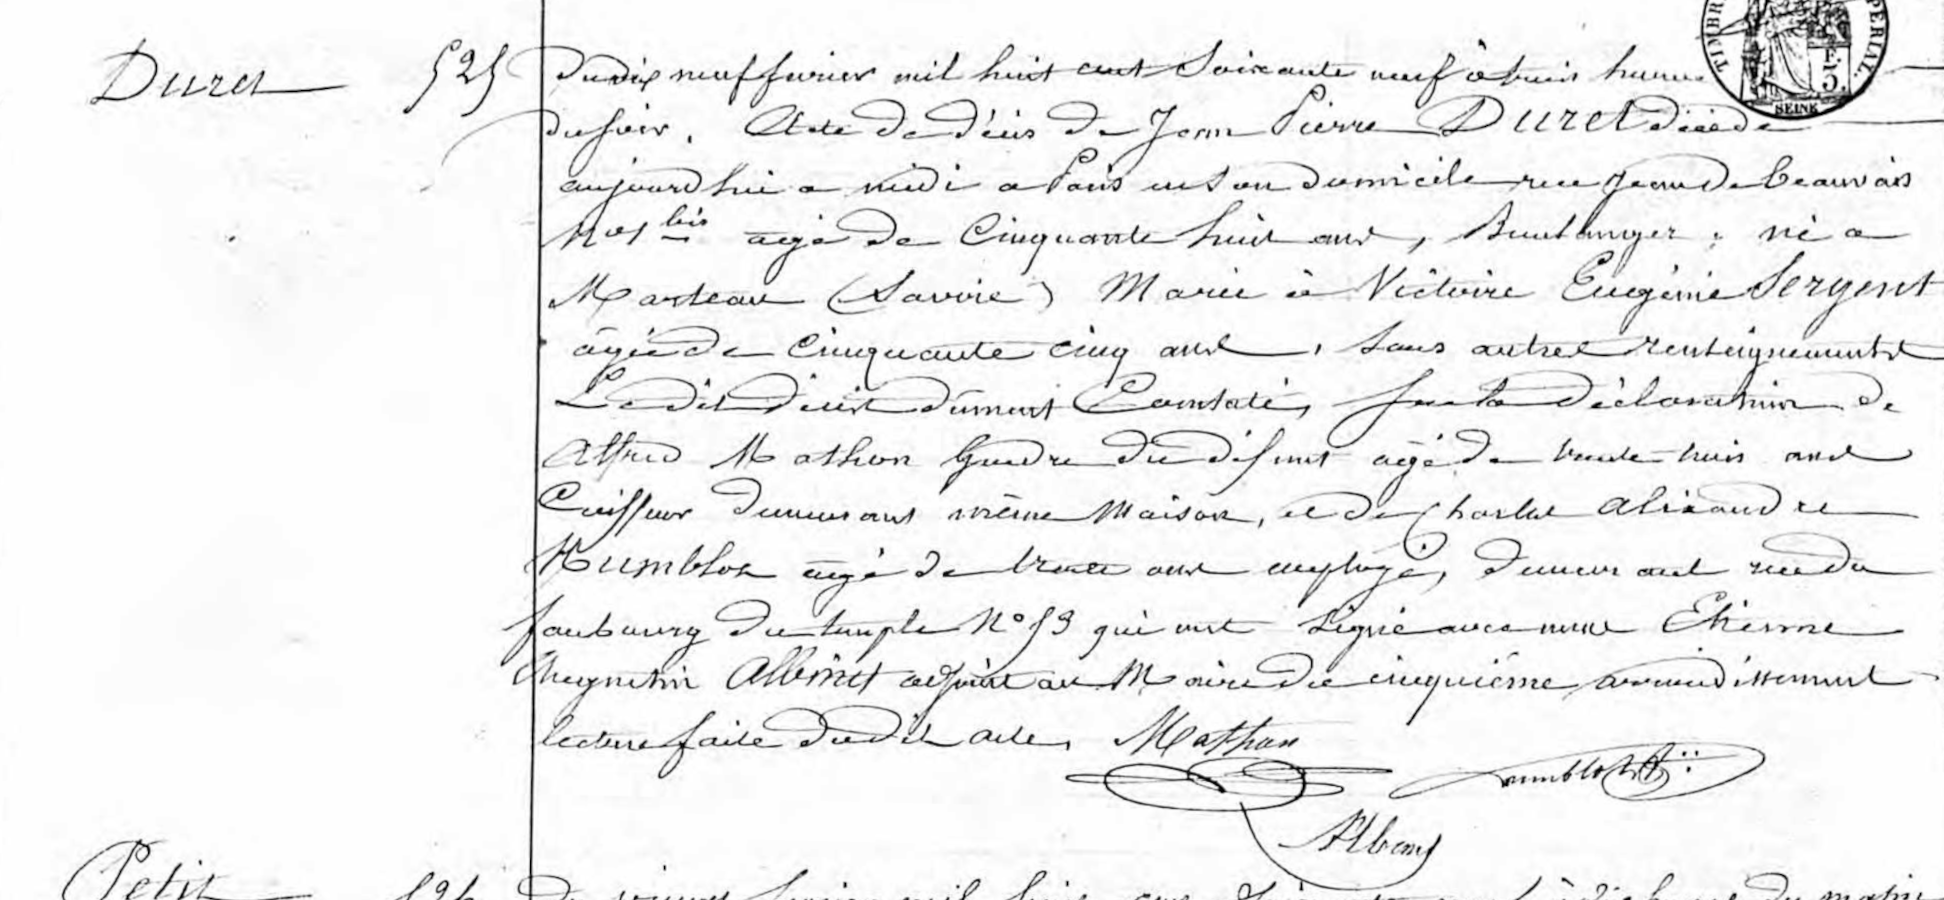 Duret 525 Du dix neuf fevrier mil huit cent soixante neuf à trois heures
du soir. Acte de décès de Jean Pierre DURET décédé
aujourd'hui a midi a Paris en son domicile rue Jean de beauvais
No 1 bis agé de Cinquante huit ans, Boulanger, né a
Marteau (Savoie) Marié à Victoire Eugénie Sergent
agée de Cinquante cinq ans, sans autres renseignements
Le dit décès dûment Constaté, sur la déclaration de
Alfred Mathon Gendre du défunt agé de trente trois ans
Coiffeur demeurant même Maison, et de Charles Alexandre
Humblot agé de trente ans employé, demeurant rue du
faubourg du temple No 53 qui ont signé avec nous Etienne
Augustin Albinet adjoint au Maire du cinquième arrondissement
lecture faite du dit acte, Mathon
Humblot
Petit 526 Du vingt fevrier mil huit cent
TIMBRE IMPERIAL.
5 C.
SEINE